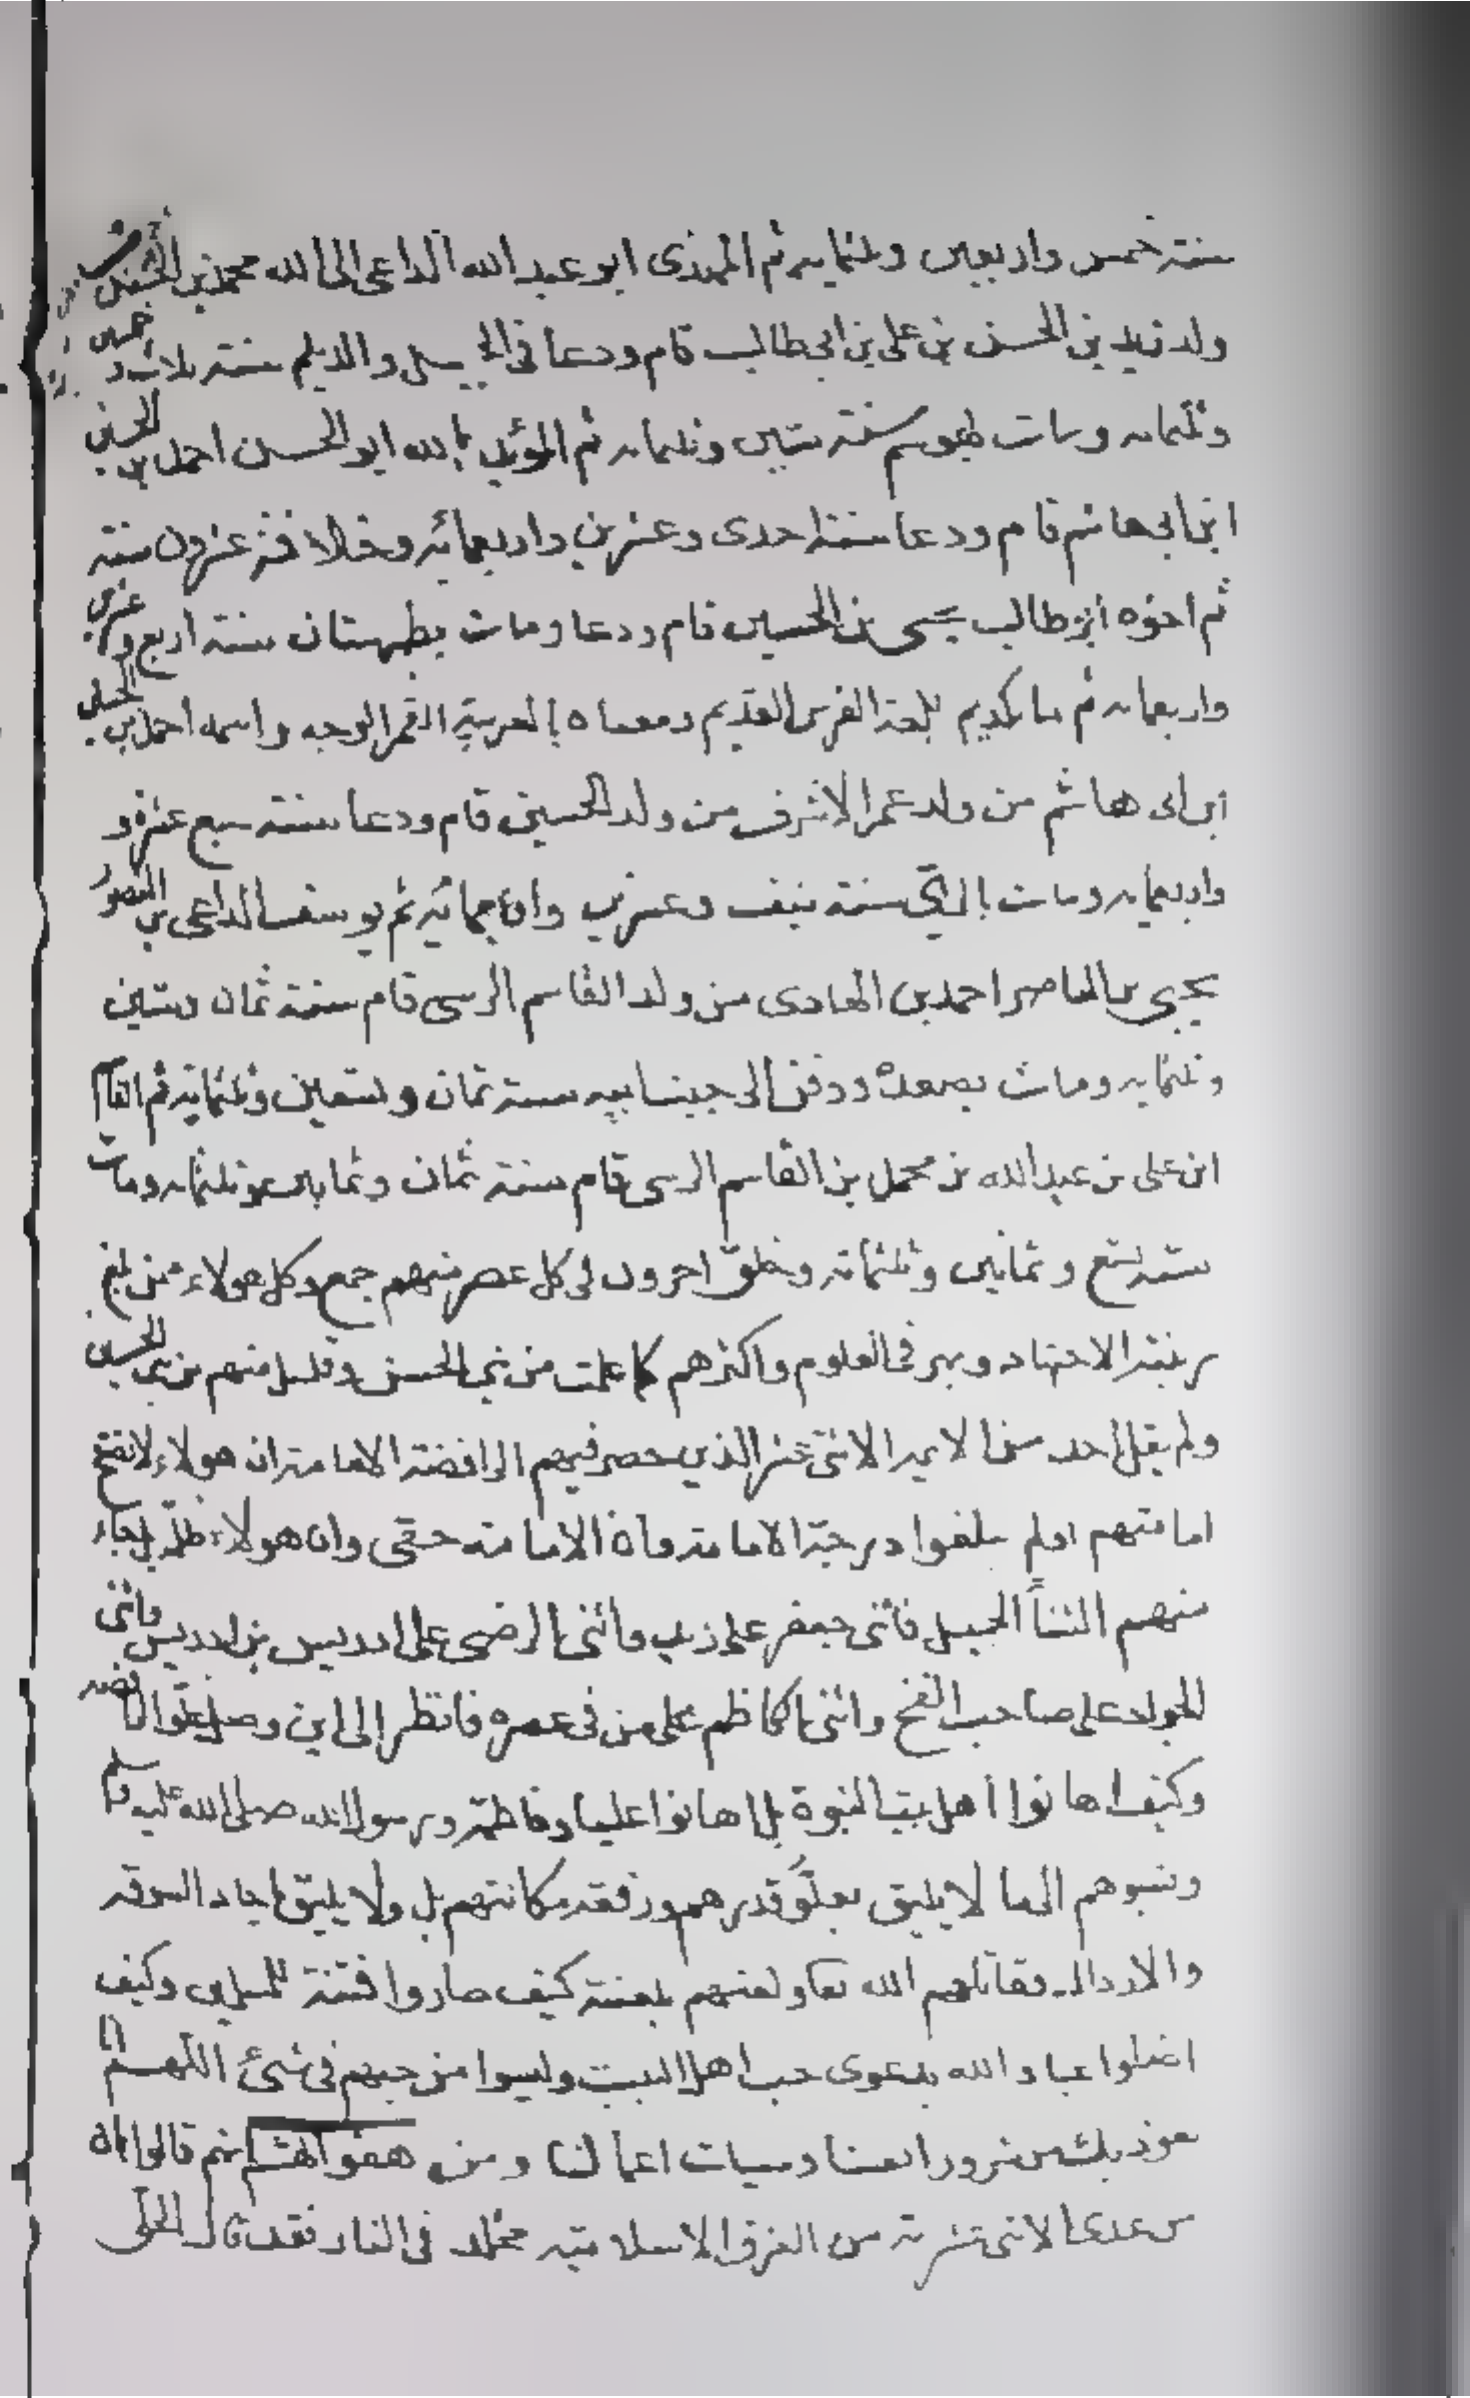 سنة خمس واربعين وثلثمايه ثم المهدى ابو عبد الله الداعى الى الله محمد بن الحسن من
ولد زيد بن الحسن بن على بن ابى طالب قام ودعا فى الجيل والديلم سنة ثلاث و خمسين
وثلثمايه ومات سنة ستين وثلثمايه ثم المؤيد بالله ابو الحسين احمد بن الحسين
ابن ابى هاشم قام ودعا سنة احدى وعشرين واربعمائه وخلافته عشرون سنة
ثم اخوه ابو طالب يحيى بن الحسين قام ودعا ومات بطبرستان سنة اربع وعشرين
واربعمايه ثم مانكديم بلغة الفرس القديم ومعناه بالعربية القمر الوجه واسمه احمد بن الحسين
ابن ابى هاشم من ولد عمر الاشرف من ولد الحسين قام ودعا سنة سبع عشرة و
واربعمايه ومات بالرى سنة نيف وعشرين واربعمائيه ثم يوسف الداعى بن المنصور
يحيى بن الناصر احمد بن الهادى من ولد القاسم الرسى قام سنة ثمان وستين
وثلثمايه ومات بصعدة ودفن الى جنب ابيه سنة ثمان وتسعين وثلثمايه ثم القاسم
ابن على بن عبد الله بن محمد بن القاسم الرسى قام سنة ثمان وثمانين وثلثمايه ومات
سنة تسع وثمانين وثلثمائة وخلق اخرون فى كل عصر منهم جمع وكل هولاء ممن بلغ
رتبة الاجتهاد وبهر فى العلوم واكثرهم كما علمت من بنى الحسن وقليل منهم من بنى الحسين
ولم يقل احد من الائمة الاثنى عشر الذين حصر فيهم الرافضة الامامة ان هولاء لا تصح
امامتهم او لم يبلغوا درجة الامامة وان الامامة حقى وان هولاء ظلمة بل جاء
منهم الثناء الجميل فاثنى جعفر على زيد واثنى الرضى على ادريس بن ادريس واثنى
الجواد على صاحب الفخ واثنى الكاظم على من فى عصره فانظر الى اين وصل غلو الرافضه
وكيف اهانوا اهل بيت النبوة بل اهانوا عليا وفاطمة ورسول الله صلى الله عليه وسلم
ونسبوهم الى ما لا يليق بعلو قدرهم ورفعة مكانتهم بل ولا يليق باحاد السوقه
والارذال فقاتلهم الله تعالى ولعنهم بلعنته كيف صاروا فتنة للمسلمين وكيف
اضلوا عباد الله بدعوى حب اهل البيت وليسوا من حبهم فى شئ اللهم انا
نعوذ بك من شرور انفسنا وسيات اعمالنا ومن هفواتهم انهم قالوا ان
من عدى الاثنى عشرية من الفرق الاسلامية مخلد فى النار فقد قال الحلى